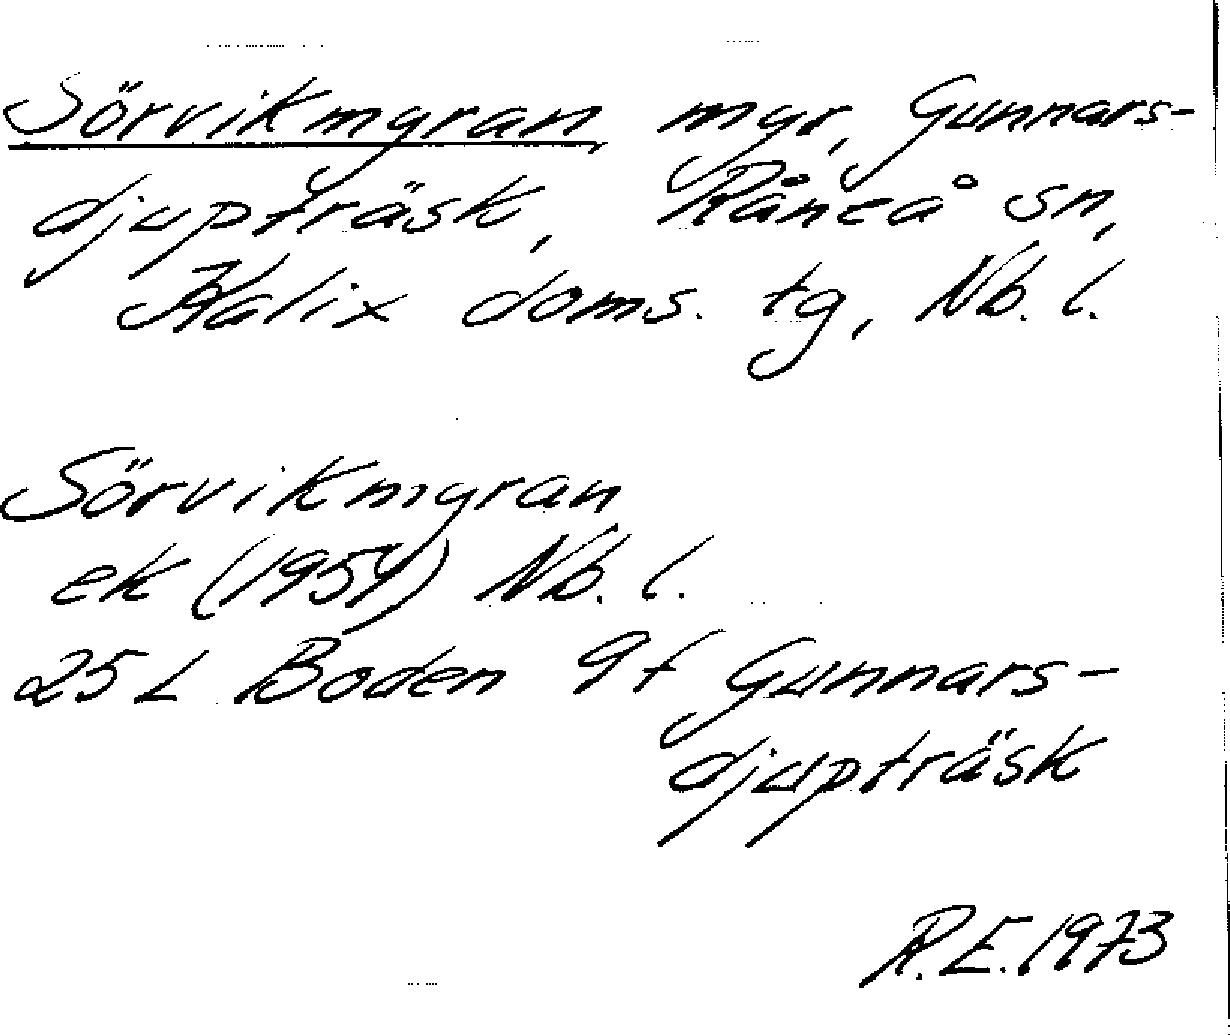 Sörvikmyran myr, Gunnars-
djupträsk, Råneå sn,
Kalix doms. tg, Nb. l.
Sörvikmyran
ek (1954) Nb. l.
25 L Boden 9f Gunnars-
djupträsk
R.E. 1973